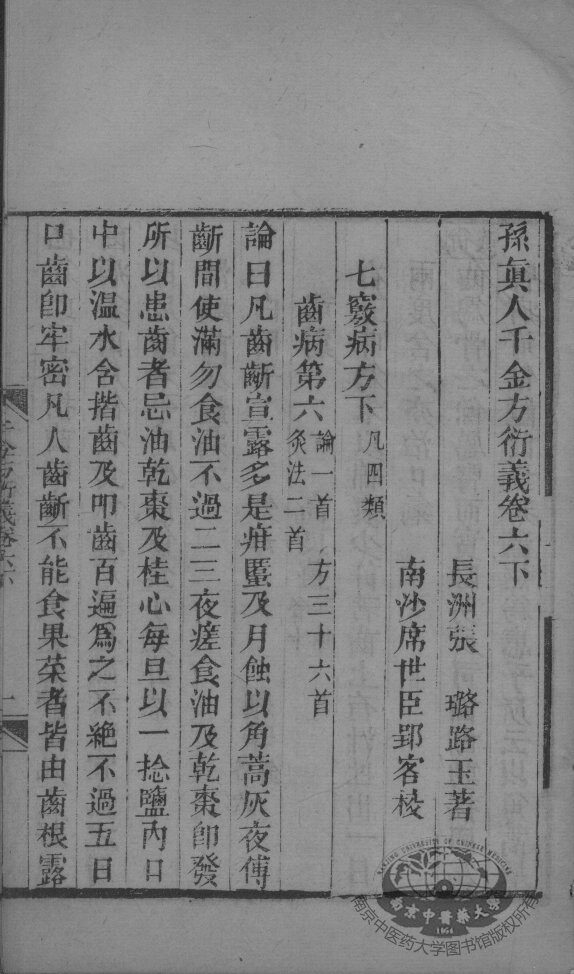 孫眞人千金方衍義卷六下
長洲張　璐路玉著
南沙席世臣郢客校
七竅病方下凡四類
齒病第六論一首　方三十六首
灸法二首
論曰凡齒齗宣露多是疳䘌及月蝕以角蒿灰夜傅
齗間使滿勿食油不過二三夜瘥食油及乾棗卽發
所以患齒者忌油乾棗及桂心每旦以一捻鹽內口
中以温水含揩齒及叩齒百遍爲之不絶不過五日
口齒卽牢密凡人齒齗不能食果菜者皆由齒根露
千金方衍義卷六下
一
NANJING UNIVERSITY OF CHINESE MEDICINE
南京中醫藥大學
1954
南京中医药大学图书馆版权所有